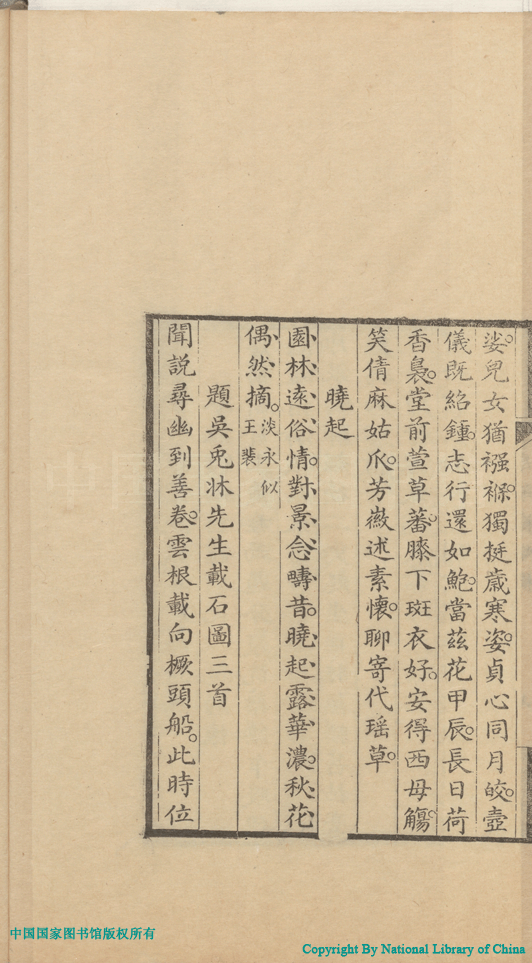 娑。兒女猶襁褓。獨挺歲寒姿。貞心同月皎。壼
儀既紹鍾。志行還如鮑。當茲花甲辰。長日荷
香裊。堂前萱草蕃。膝下斑衣好。安得西母觴。
笑倩麻姑爪。芳徽述素懷。聊寄代瑶草。
曉起
園林遠俗情。對景念疇昔。曉起露華濃。秋花
偶然摘。淡永似王裴
題吳兎牀先生載石圖三首
聞說尋幽到善卷。雲根載向橛頭船。此時位
中国国家图书馆版权所有
Copyright By National Library of China